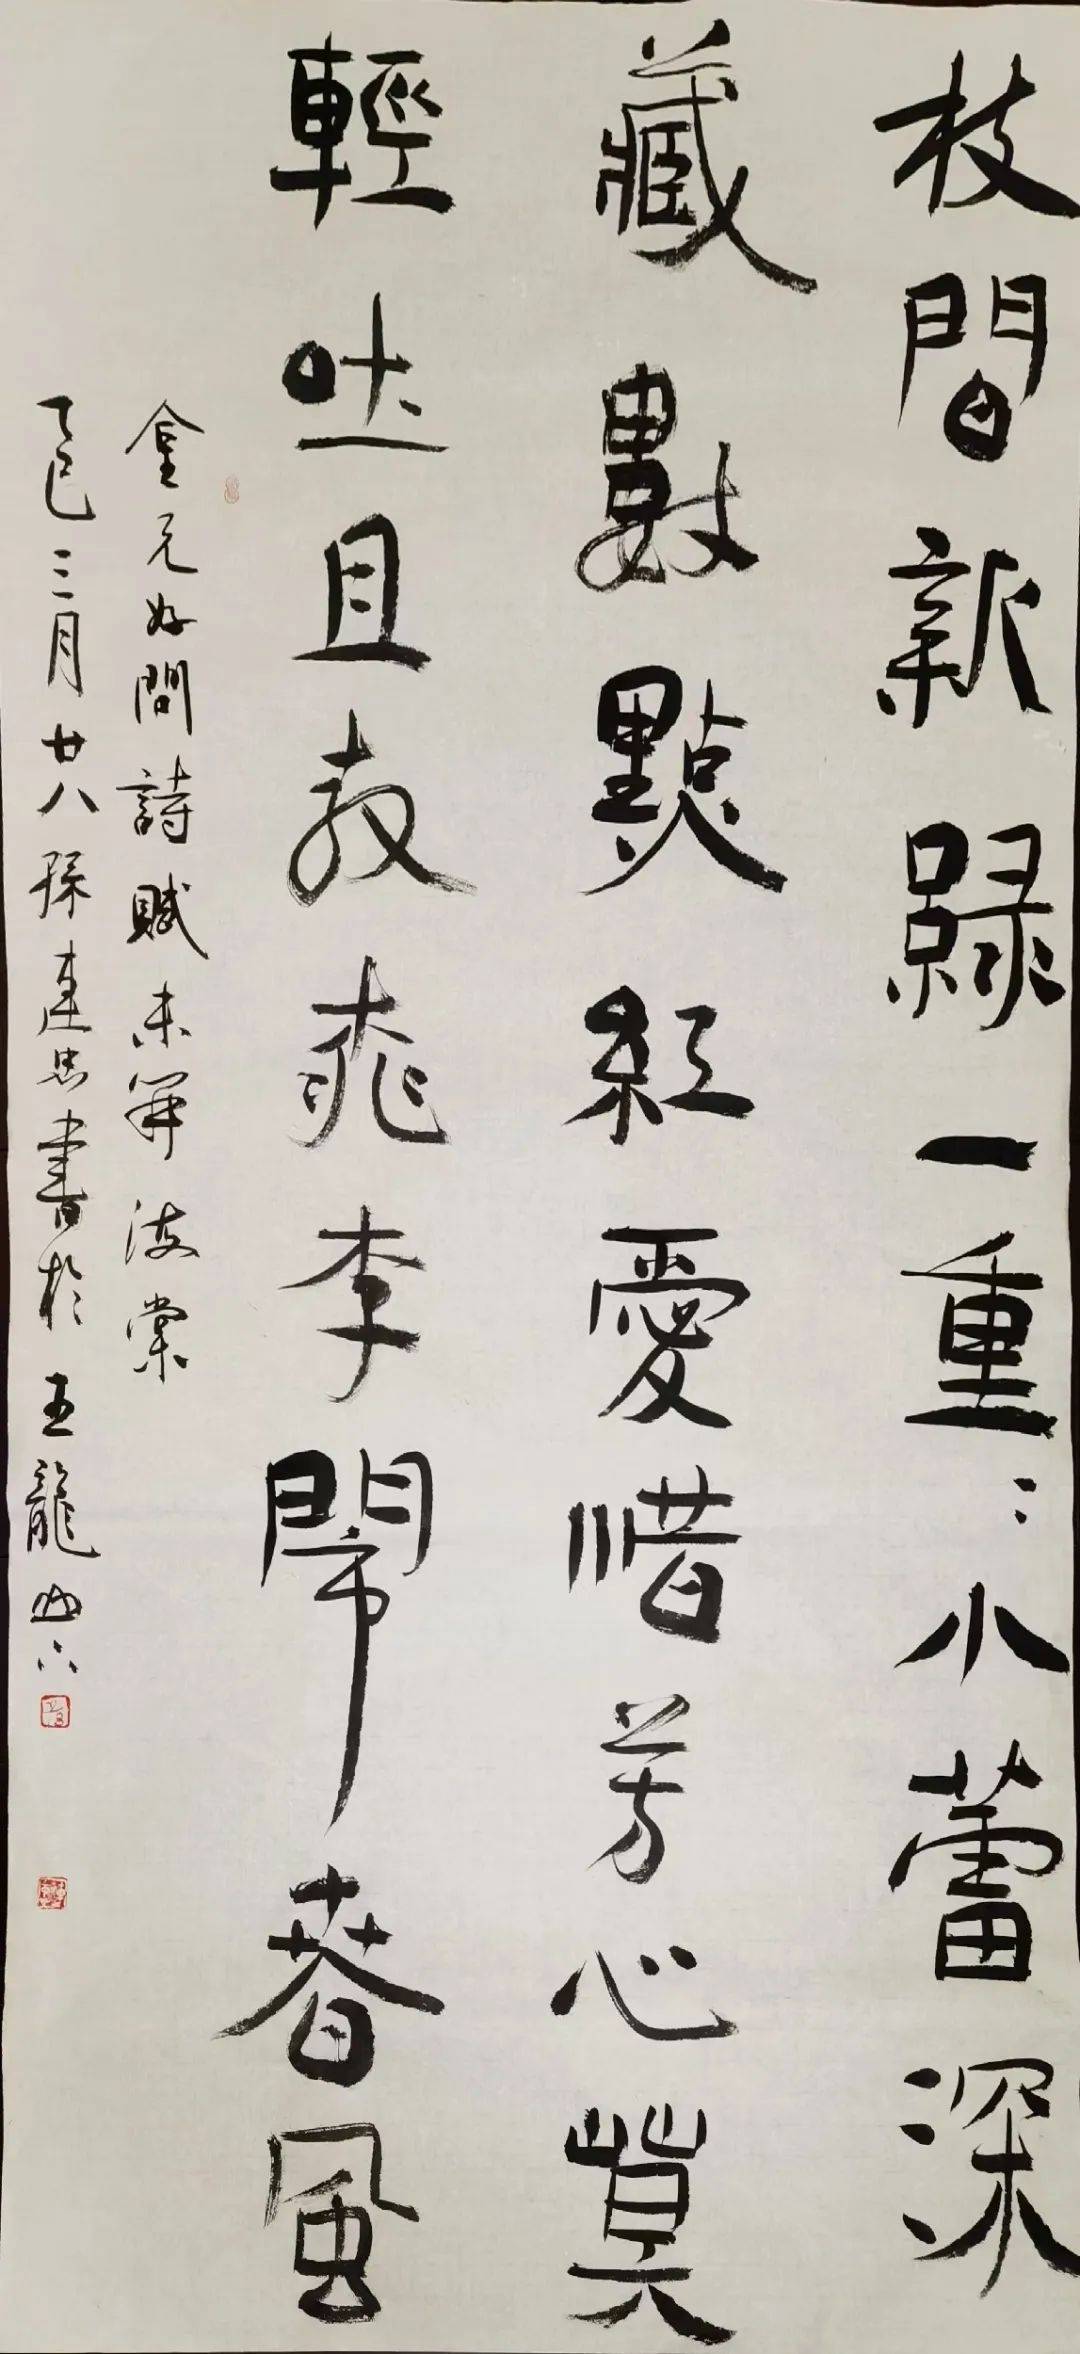 枝間新綠一重〻小蕾深
藏數點紅愛惜芳心莫
輕吐且教桃李鬧春風
金元好問詩賦未開海棠
乙巳三月廿八孫忠書於龍